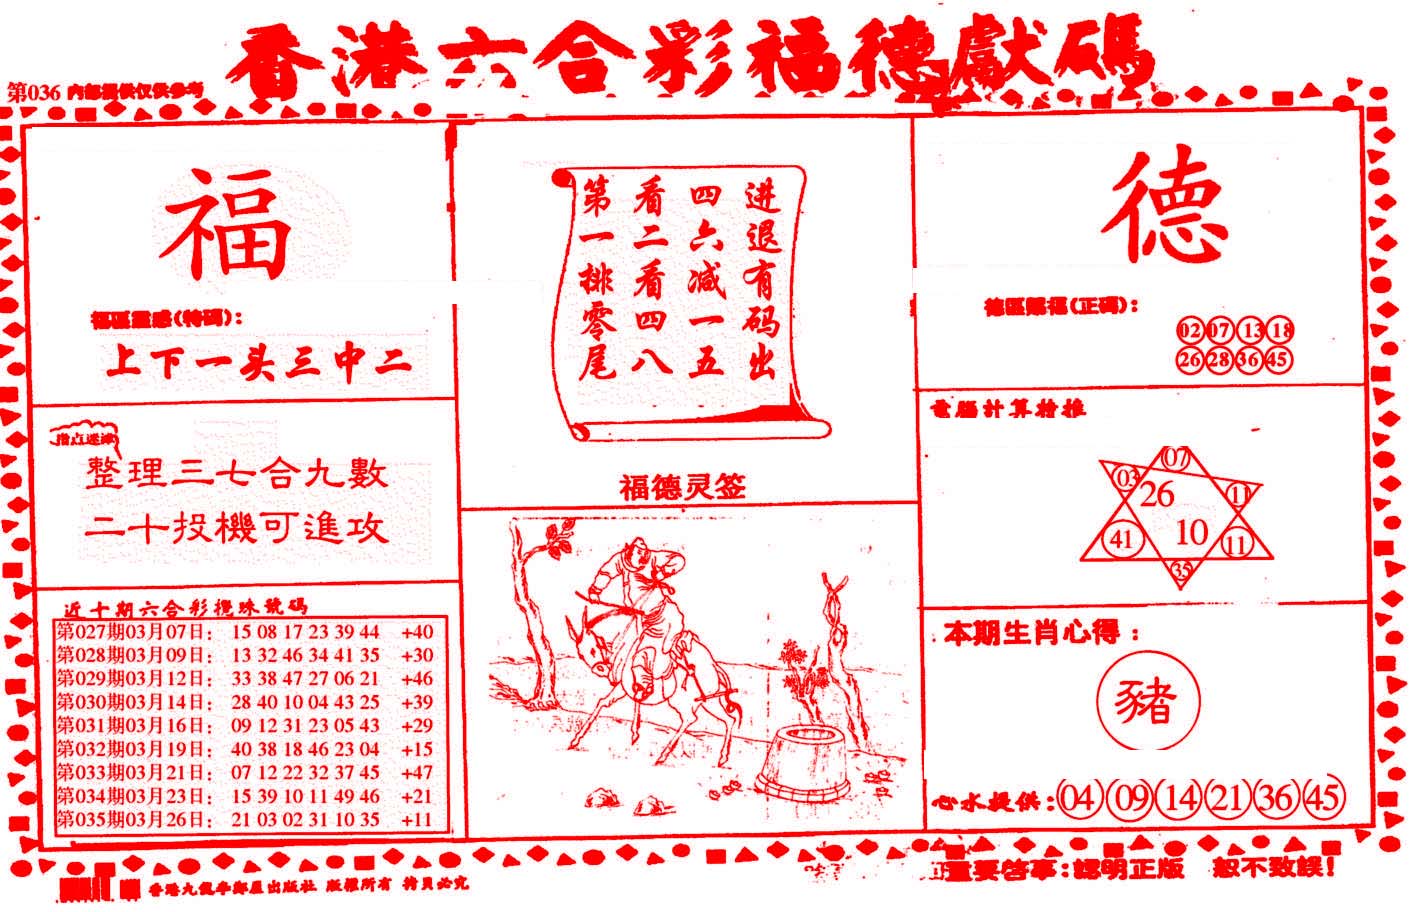 香港六合彩福德獻碼
第036 内部提供仅供参考
福
福區靈感(特碼)：
上下一头三中二
指点迷津
整理三七合九數
二十投機可進攻
近十期六合彩攪珠號碼
第027期03月07日： 15 08 17 23 39 44 +40
第028期03月09日： 13 32 46 34 41 35 +30
第029期03月12日： 33 38 47 27 06 21 +46
第030期03月14日： 28 40 10 04 43 25 +39
第031期03月16日： 09 12 31 23 05 43 +29
第032期03月19日： 40 38 18 46 23 04 +15
第033期03月21日： 07 12 22 32 37 45 +47
第034期03月23日： 15 39 10 11 49 46 +21
第035期03月26日： 21 03 02 31 10 35 +11
进退有码出
四六减一五
看二看四八
第一排零尾
福德灵签
德
德區賜福(正码)：
02 07 13 18
26 28 36 45
電腦計算特推
07
03 26 11
41 10 11
35
本期生肖心得：
豬
心水提供：04 09 14 21 36 45
香港九龍李鄭屋出版社 版權所有 拷貝必究
重要啓事：認明正版 恕不致誤！